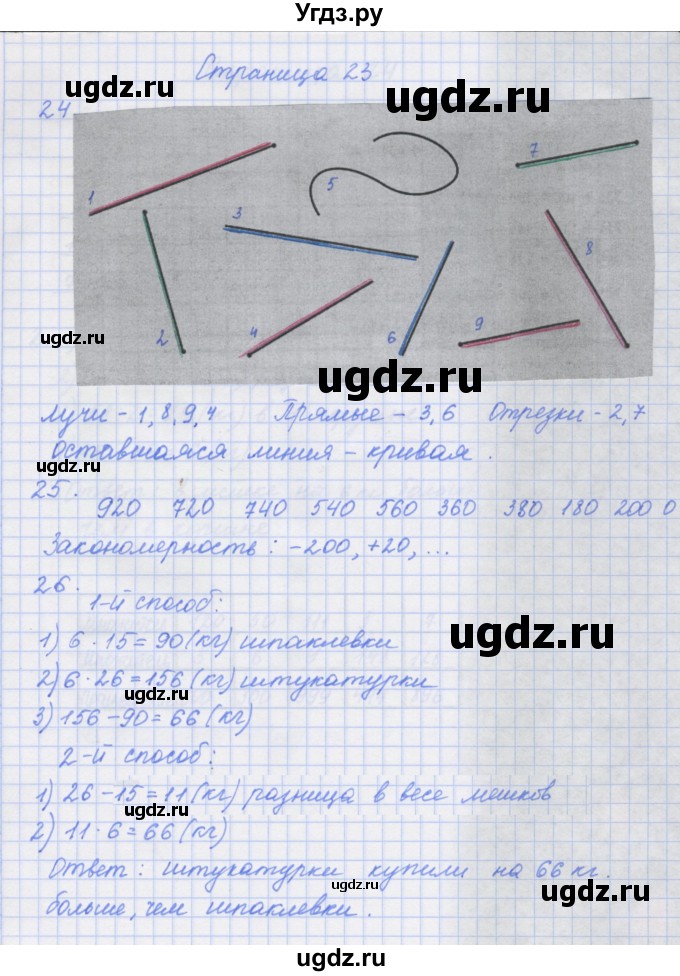 Угдз.ру
Страница 23
24
1
2
3
4
5
6
7
8
9
Лучи - 1, 8, 9, 4 Прямые - 3, 6 Отрезки - 2, 7
Оставшаяся линия - кривая.
25.
920 720 740 540 560 360 380 180 200 0
Закономерность: -200, +20, ...
26.
1-й способ:
1) 6 · 15 = 90 (кг) шпаклевки
2) 6 · 26 = 156 (кг) штукатурки
3) 156 - 90 = 66 (кг)
2-й способ:
1) 26 - 15 = 11 (кг) разница в весе мешков
2) 11 · 6 = 66 (кг)
Ответ: штукатурки купили на 66 кг.
больше, чем шпаклевки.
ugdz.ru
ugdz.ru
ugdz.ru
ugdz.ru
ugdz.ru
ugdz.ru
ugdz.ru
ugdz.ru
ugdz.ru
ugdz.ru
ugdz.ru
ugdz.ru
ugdz.ru